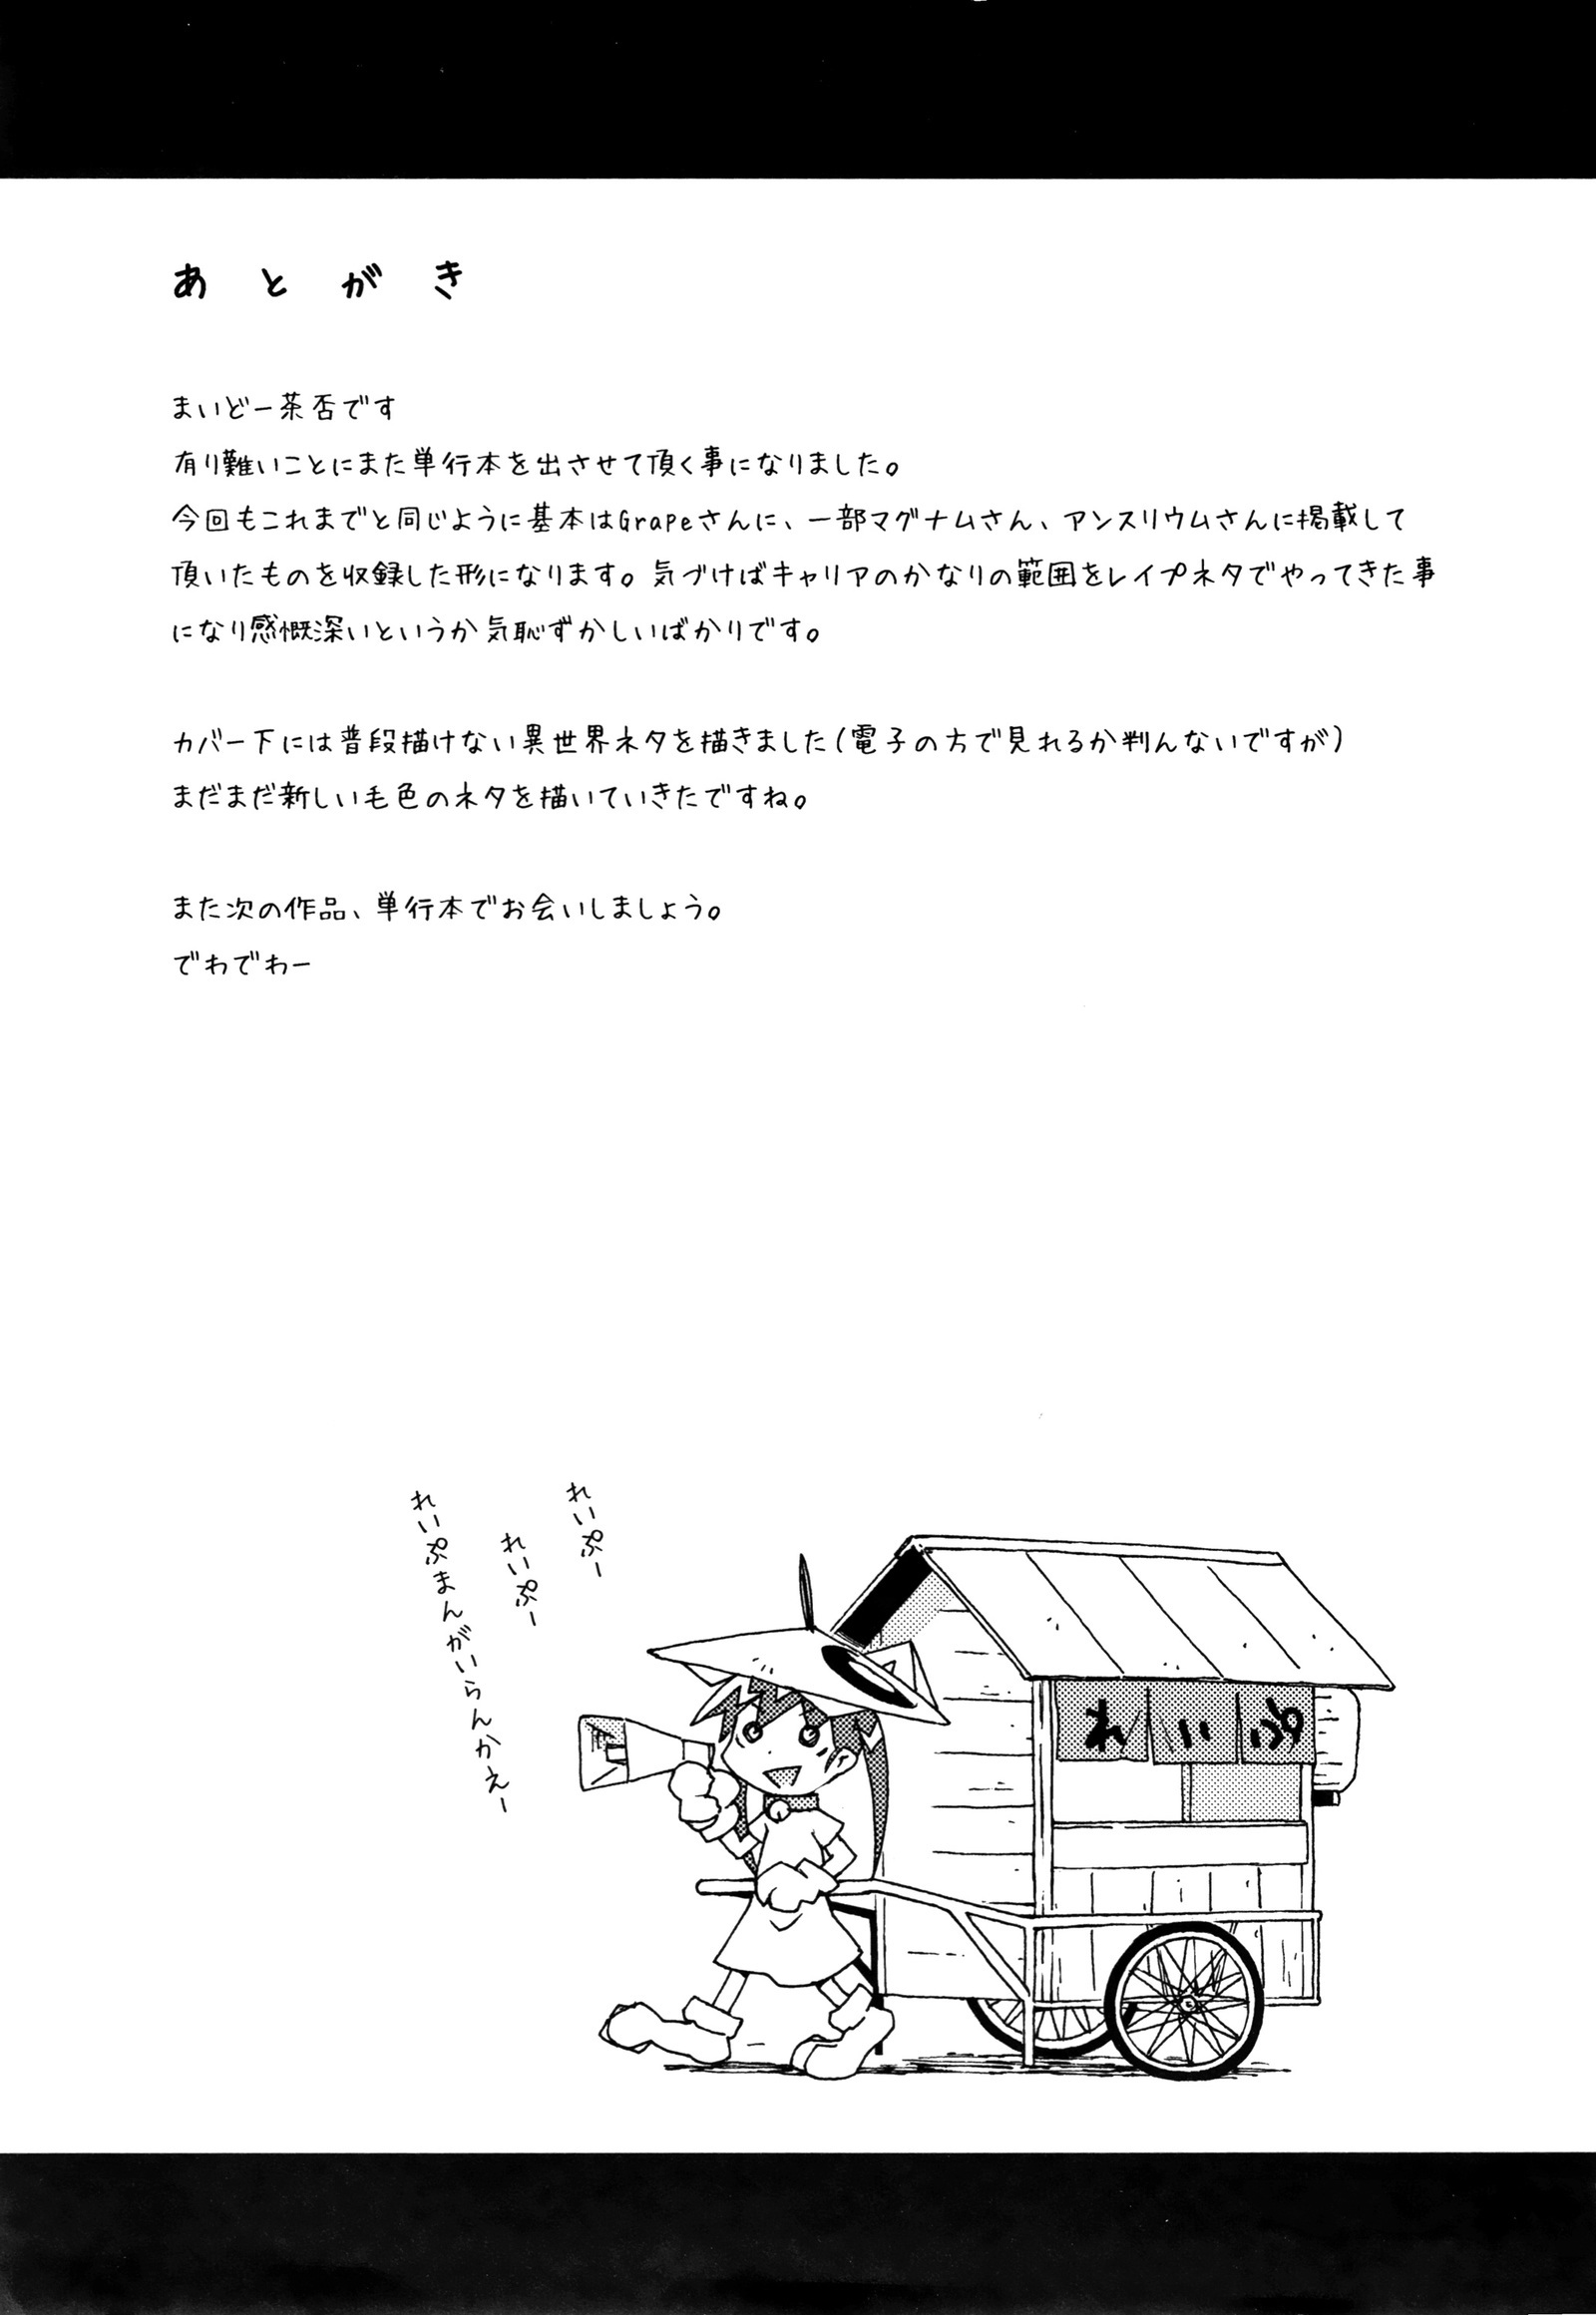 あとがき
まいどー茶否です
有り難いことにまた単行本を出させて頂く事になりました。
今回もこれまでと同じように基本はGrapeさんに、一部マグナムさん、アンスリウムさんに掲載して
頂いたものを収録した形になります。気づけばキャリアのかなりの範囲をレイプネタでやってきた事
になり感慨深いというか気恥ずかしいばかりです。
カバー下には普段描けない異世界ネタを描きました(電子の方で見れるか判んないですが)
まだまだ新しい毛色のネタを描いていきたですね。
また次の作品、単行本でお会いしましょう。
でわでわー
れいぷー
れいぷー
れいぷまんがいらんかえー
れいぷ